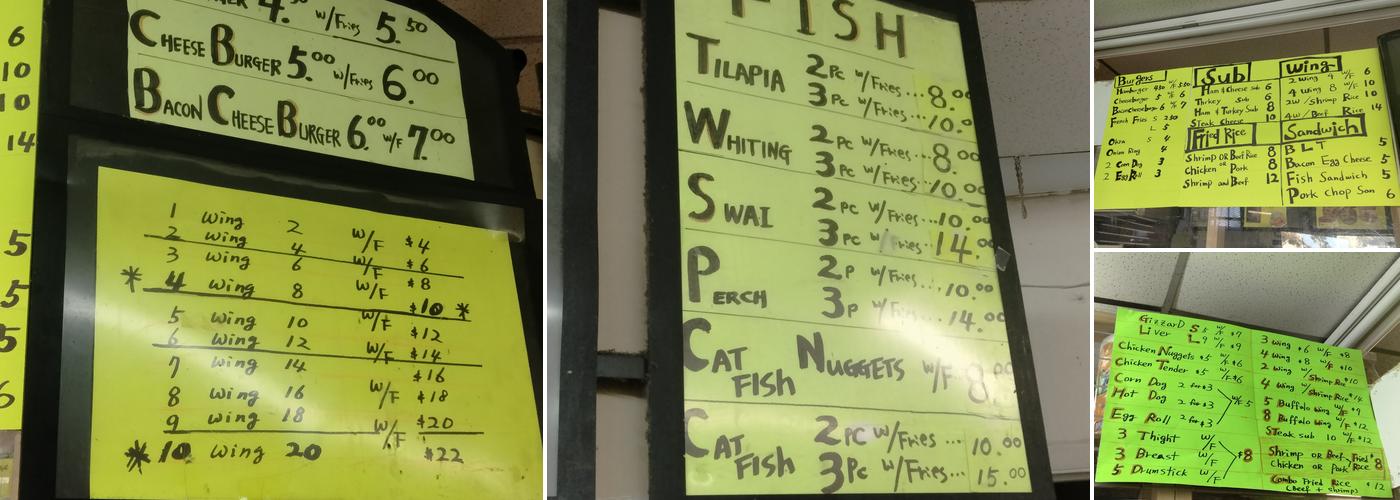 6
10
10
14
5
5
5
6
4.50 w/Fries 5.50
CHEESE BURGER 5.00 w/Fries 6.00
BACON CHEESE BURGER 6.00 w/F 7.00
1 wing 2 w/F $4
2 wing 4 w/F $6
3 wing 6 w/F $8
* 4 wing 8 w/F $10 *
5 wing 10 w/F $12
6 wing 12 w/F $14
7 wing 14 $16
8 wing 16 w/F $18
9 wing 18 $20
* 10 wing 20 w/F $22
FISH
TILAPIA 2PC w/Fries... 8.00
3PC w/Fries... 10.00
WHITING 2PC w/Fries... 8.00
3PC w/Fries... 10.00
SWAI 2PC w/Fries... 10.00
3PC w/Fries... 14.00
PERCH 2P w/Fries... 10.00
3P w/Fries... 14.00
CAT FISH NUGGETS w/F 8.00
CAT FISH 2PC w/Fries... 10.00
3Pc w/Fries... 15.00
Burgers
Hamburger 450 w/F 5.50
Cheeseburger 5 w/F 6
BaconCheeseburger 6 w/F 7
French Fries S 250
L 5
Okra S 4
Onion Ring 4
2 Corn Dog 3
2 Egg Roll 3
Sub
Ham & Cheese Sub 6
Turkey Sub 6
Ham & Turkey Sub 8
Steak Cheese 10
Fried Rice
Shrimp OR Beef Rice 8
Chicken or Pork 8
Shrimp and Beef 12
Wing
2 Wing 4 w/F 6
4 Wing 8 w/F 10
2w/Shrimp Rice 10
4w/Beef Rice 14
Sandwich
BLT 5
Bacon Egg Cheese 5
Fish Sandwich 5
Pork Chop San 6
Gizzard S 5 w/F $7
Liver L 9 w/F $9
Chicken Nuggets $5 w/F $6
Chicken Tender $5 w/F $6
Corn Dog 2 for $3
Hot Dog 2 for $3 w/F 5
Egg Roll 2 for $3
3 Thight w/F
3 Breast w/F $8
5 Drumstick w/F
3 Wing $6 w/F $8
4 Wing $8 w/F $10
2 Wing w/Shrimp Rice $10
4 Wing w/Shrimp Rice $14
5 Buffalo Wing w/F $9
8 Buffalo Wing w/F $12
Steak sub 10 w/F $12
Shrimp OR Beef Fried Rice $8
chicken or Pork
Combo Fried Rice $12
(Beef + shrimp)